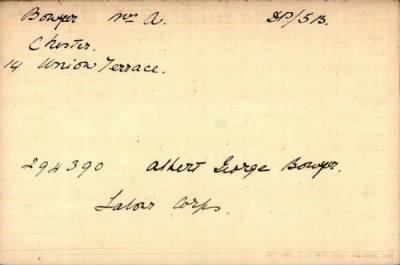 Bowyer Mrs A. DP/5B.
Chester.
14 Union Terrace.
294390 Albert George Bowyer.
Labour Corps.